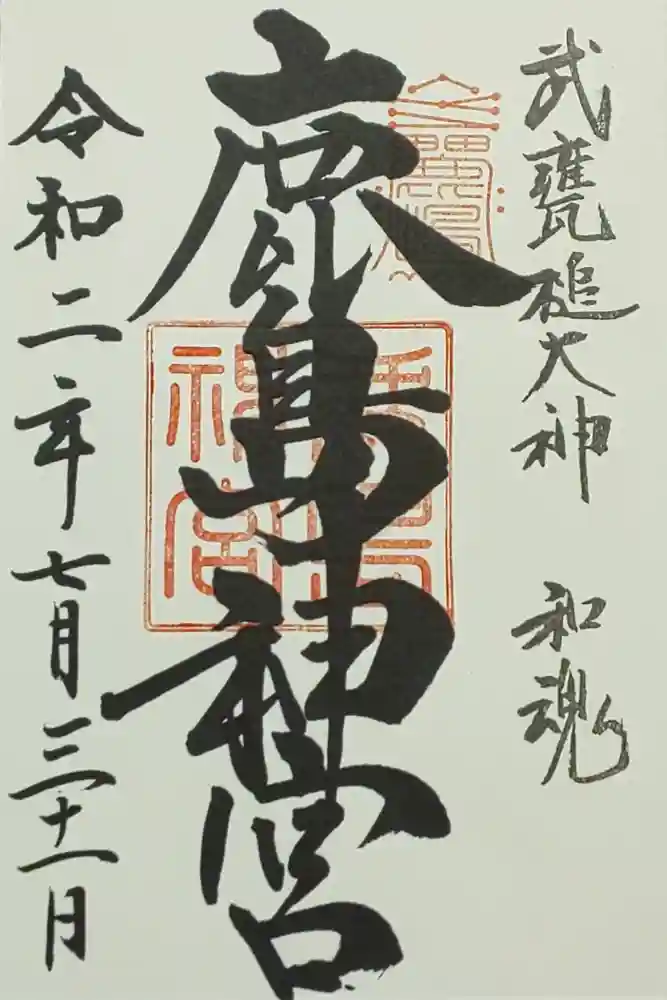 武甕槌大神 和魂
鹿島神宮
鹿島
神宮
令和二年七月三十一日